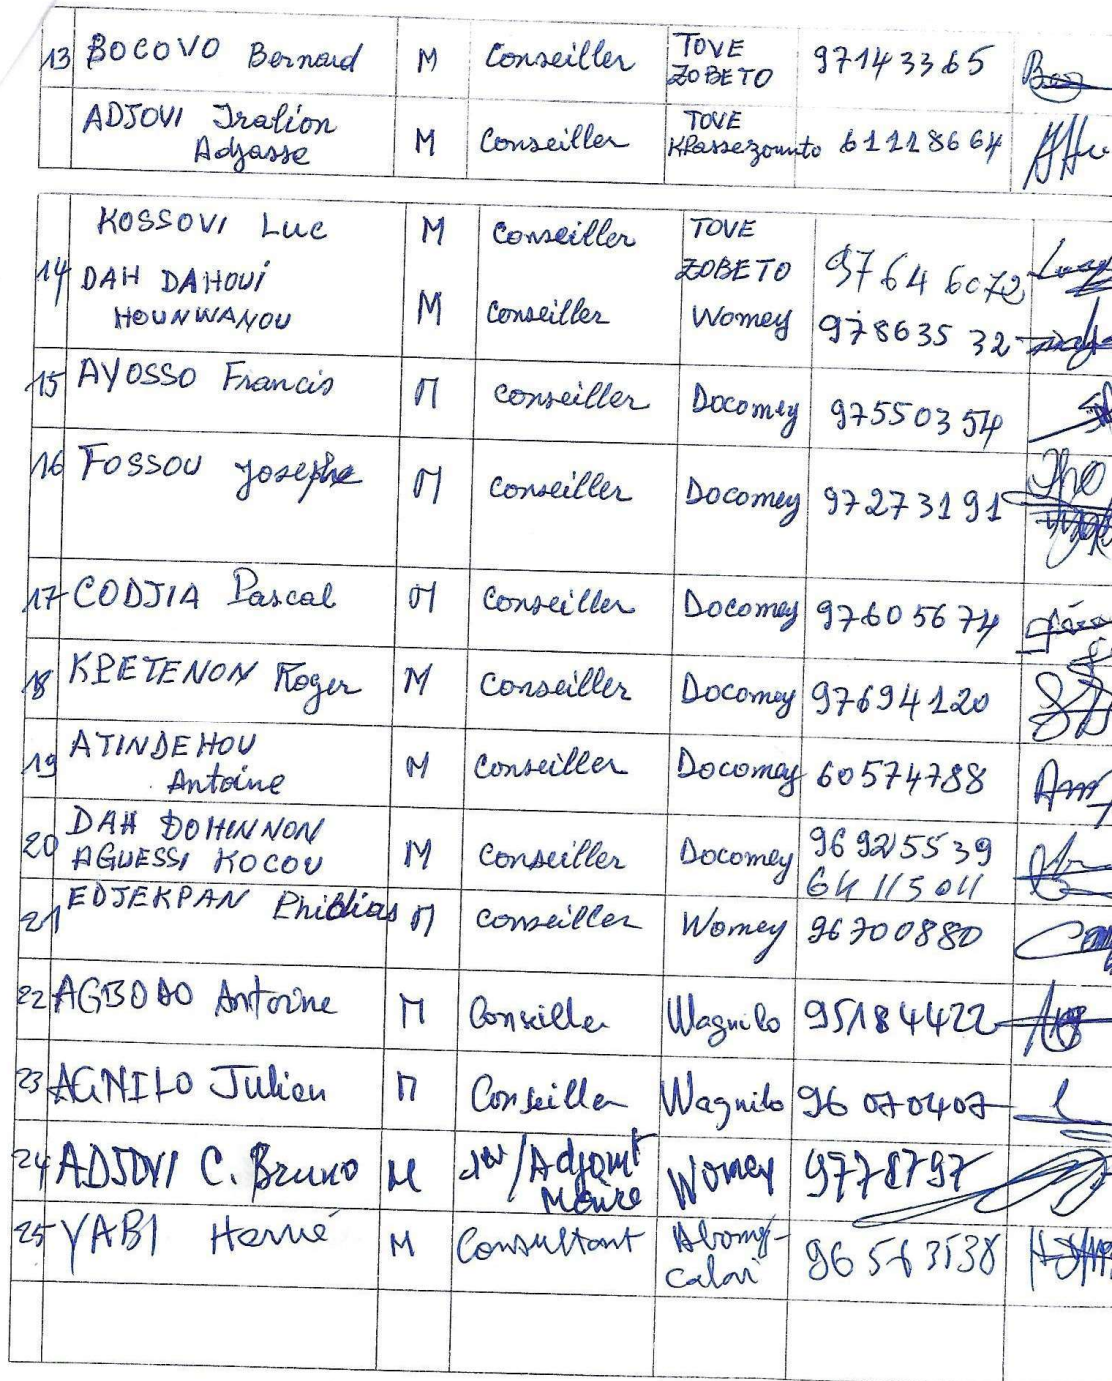 13 BOCOVO Bernard M Conseiller TOVE ZOBETO 97143365
ADJOVI Iralion Adjasse M Conseiller TOVE KPassezounto 61118664
KOSSOVI Luc M Conseiller TOVE ZOBETO 97646072
14 DAH DAHOUI HOUNWANOU M Conseiller Womey 97863532
15 AYOSSO Francis M Conseiller Docomey 97550354
16 FOSSOU Josephe M Conseiller Docomey 97273191
17 CODJIA Pascal M Conseiller Docomey 97605674
18 KPETENON Roger M Conseiller Docomey 97694120
19 ATINDEHOU Antoine M Conseiller Docomey 60574788
20 DAH DOHINNON AGUESSI KOCOU M Conseiller Docomey 96925539
64115011
21 EDJEKPAN M Conseiller Womey 96700880
22 AGBODO Antoine M Conseiller Wagnilo 95184422
23 AGNILO Julien M Conseiller Wagnilo 96070407
24 ADJOVI C. Bruno M 1er/Adjoint Maire Womey 9778797
25 YABI Hervé M Consultant Abomy-Calavi 96563538